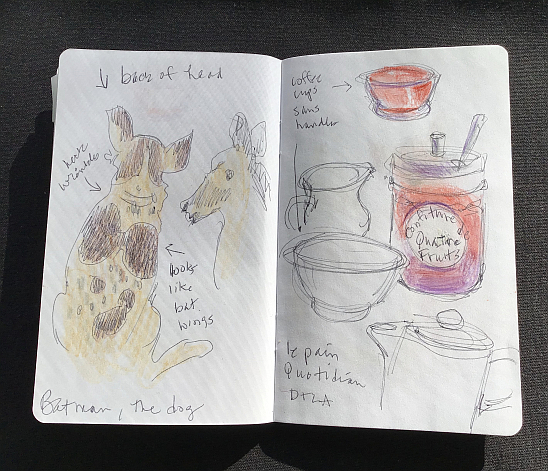 ↓ back of head
neck
wrinkles
← looks
like
bat
wings
Batman, the dog
coffee →
cups
sans
handles
Confiture de
Quatre
Fruits
le pain
Quotidian
DTLA